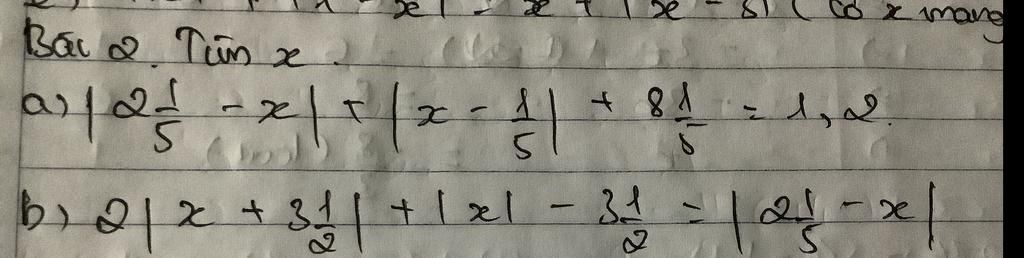 | x - 5| ( Có x mang
Bài 2. Tìm x.
a) |2 1/5 - x| + |x - 1/5| + 8 1/5 = 1,2.
b) 2|x + 3 1/2| + |x| - 3 1/2 = |2 1/5 - x|